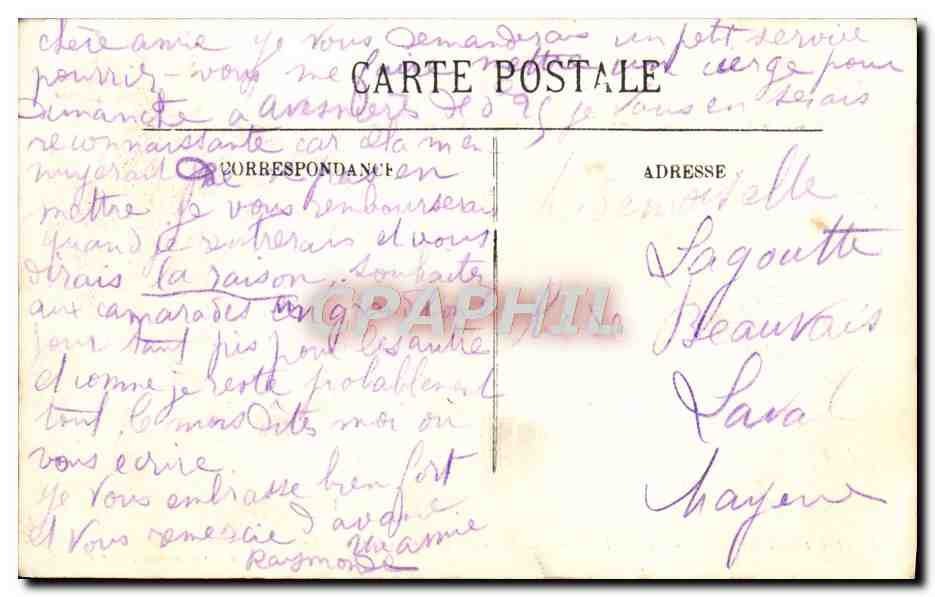 chère amie je vous demanderais un petit service
pourriez-vous me faire mettre un cierge pour
CARTE POSTALE
Dimanche a avesnières de 0 25 je vous en serais
reconnaissante car cela m en
CORRESPONDANCE
ADRESSE
nuyerait de ne pas en
mettre je vous rembourserai
quand je rentrerais et vous
dirais la raison. Souhaiter
aux camarades un
jour tant pis pour les autre
et comme je reste probablement
tout le mois Dites moi où
vous ecrire
je vous embrasse bien fort
et vous remercie d avance
une amie
Raymonde
Demoiselle
Lagoutte
Beauvais
Laval
Mayenne
CPARHIL